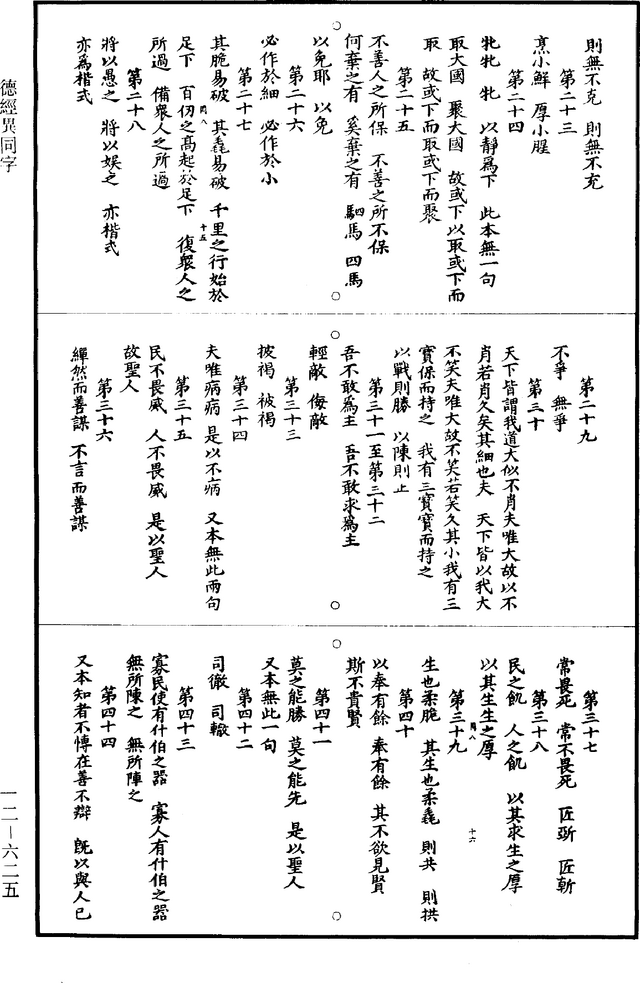 則無不克　則無不充
第二十三
烹小鮮　厚小腥
第二十四
牝牝　牝　以靜為下　此本無一句
取大國　聚大國　故或下以取或下而
取　故或下而取或下而聚
第二十五
不善人之所保　不善之所不保
何棄之有　奚棄之有　駟馬　四馬
以免耶　以免
第二十六
必作於細　必作於小
第二十七
其脆易破　其毳易破　千里之行始於
足下　百仞之高起於足下　復衆人之
所過　備衆人之所過
第二十八
將以愚之　將以娛之　亦楷式
亦為楷式
第二十九
不爭　無爭
第三十
天下皆謂我道大似不肖夫唯大故以不
肖若肖久矣其細也夫　天下皆以我大
不笑夫唯大故不笑若笑久其小我有三
寶保而持之　我有三寶寶而持之
以戰則勝　以陳則止
第三十一至第三十二
吾不敢為主　吾不敢求為主
輕敵　侮敵
第三十三
披褐　被褐
第三十四
夫唯病病　是以不病　又本無此兩句
第三十五
民不畏威　人不畏威　是以聖人
故聖人
第三十六
繟然而善謀　不言而善謀
第三十七
常畏死　常不畏死　匠斲　匠斬
第三十八
民之飢　人之飢　以其求生之厚
以其生生之厚
第三十九
生也柔脆　其生也柔毳　則共　則拱
第四十
以奉有餘　奉有餘　其不欲見賢
斯不貴賢
第四十一
莫之能勝　莫之能先　是以聖人
又本無此一句
第四十二
司徹　司轍
第四十三
寡民使有什伯之器　寡人有什伯之器
無所陳之　無所陣之
第四十四
又本知者不愽在善不辯　既以與人已
德經異同字
一二—六二五
同八
十五
同八
十六